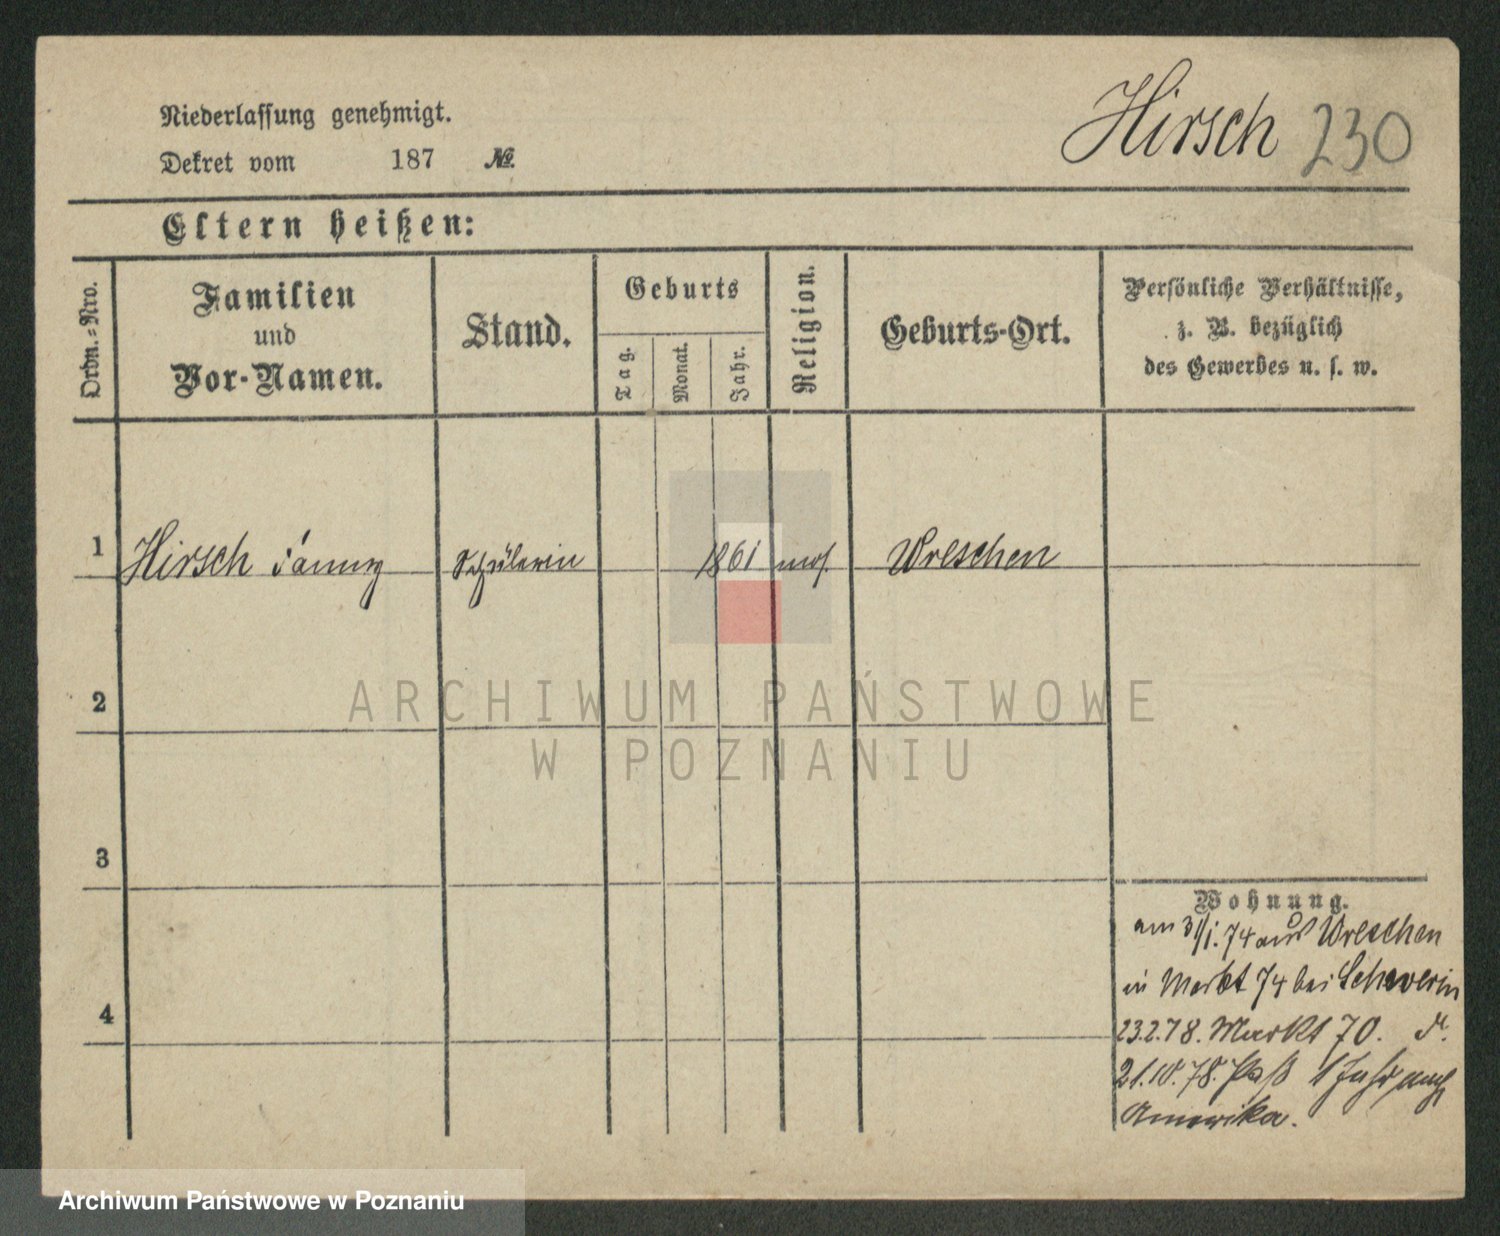 Hirsch 230
Niederlassung genehmigt.
Dekret vom 187 №.
Eltern heißen:
Ordn.-Nro.
Familien
und
Vor-Namen.
Stand.
Geburts
Tag.
Monat.
Jahr.
Religion.
Geburts-Ort.
Persönliche Verhältnisse,
z. B. bezüglich
des Gewerbes u. s. w.
1 Hirsch Fanny Schülerin 1861 mos. Wreschen
2
3
4
Wohnung.
am 31/1. 74 aus Wreschen
in Markt 74 bei Schwerin
23.2.78. Markt 70.
21.10.78. Paß 1 Jahr nach
Amerika.
ARCHIWUM PAŃSTWOWE
W POZNANIU
Archiwum Państwowe w Poznaniu